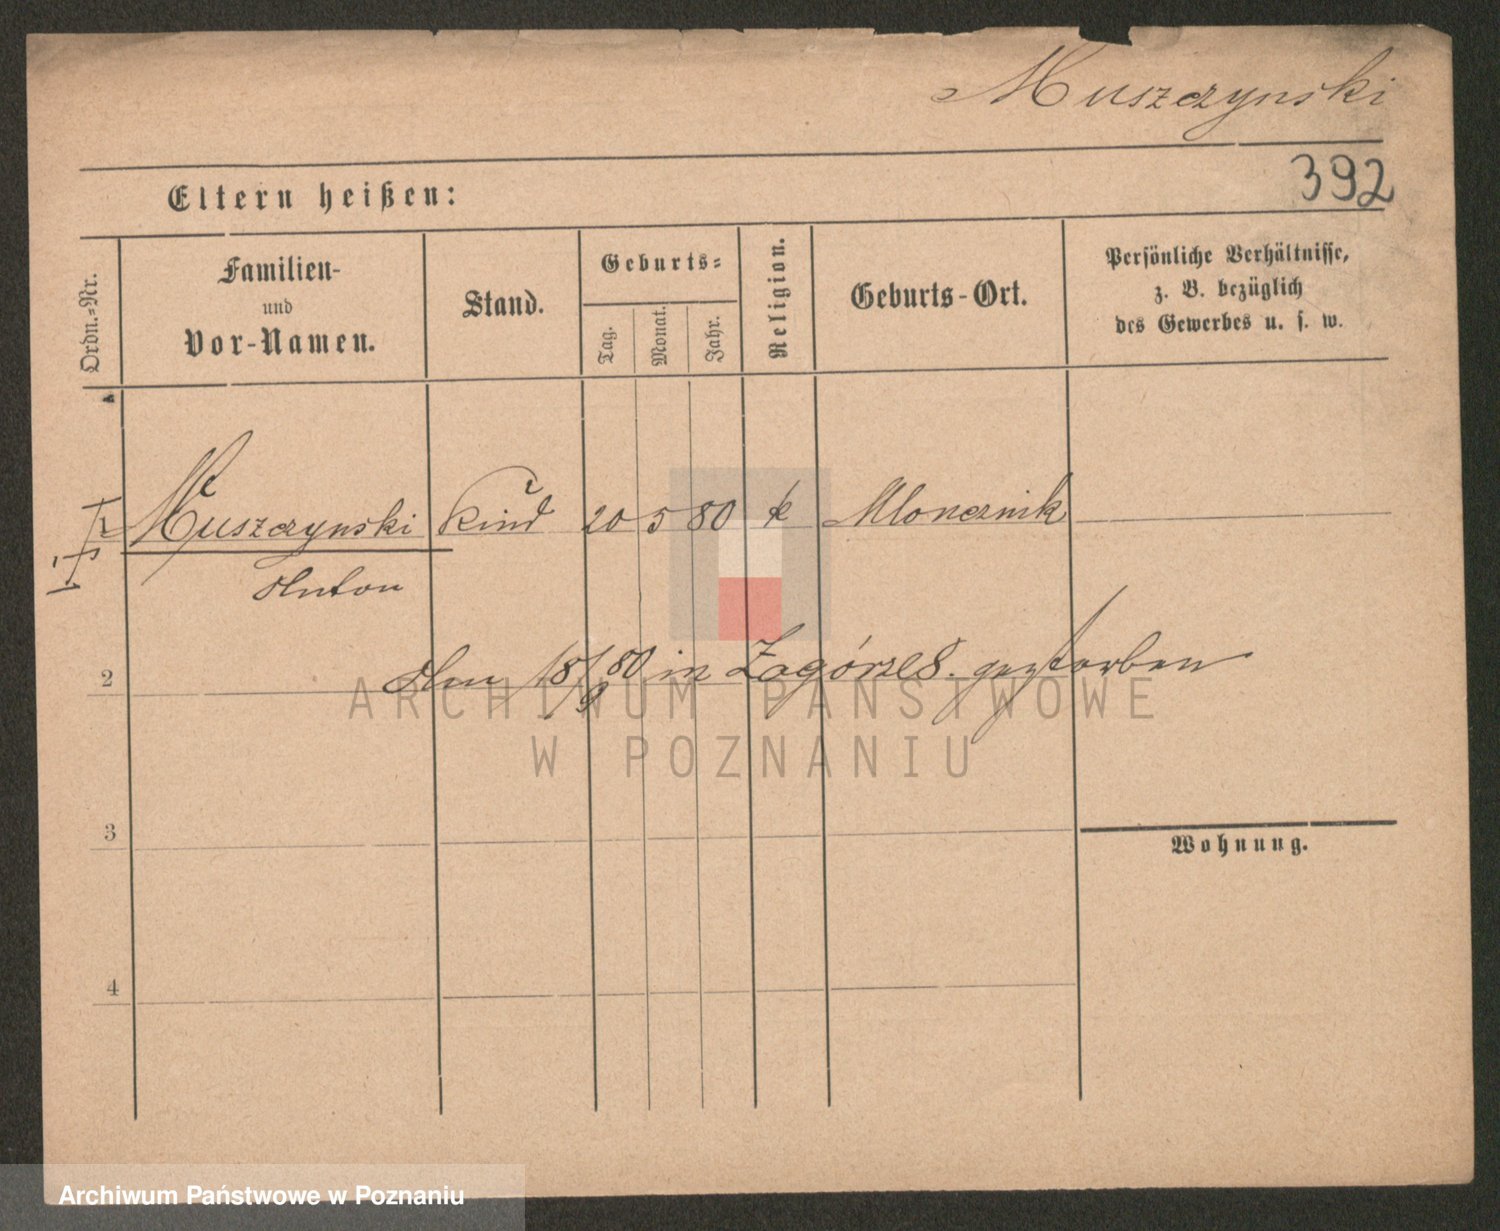 Muszczynski
392
Eltern heißen:
Ordn.-Nr.
Familien-
und
Vor-Namen.
Stand.
Geburts-
Tag.
Monat.
Jahr.
Religion.
Geburts-Ort.
Persönliche Verhältnisse,
z. B. bezüglich
des Gewerbes u. s. w.
Muszczynski Kind 20 5 80 k Mloncznik
Anton
2
Am 18/9 80 in Zagórze gestorben
ARCHIWUM PAŃSTWOWE
W POZNANIU
3
Wohnung.
4
Archiwum Państwowe w Poznaniu